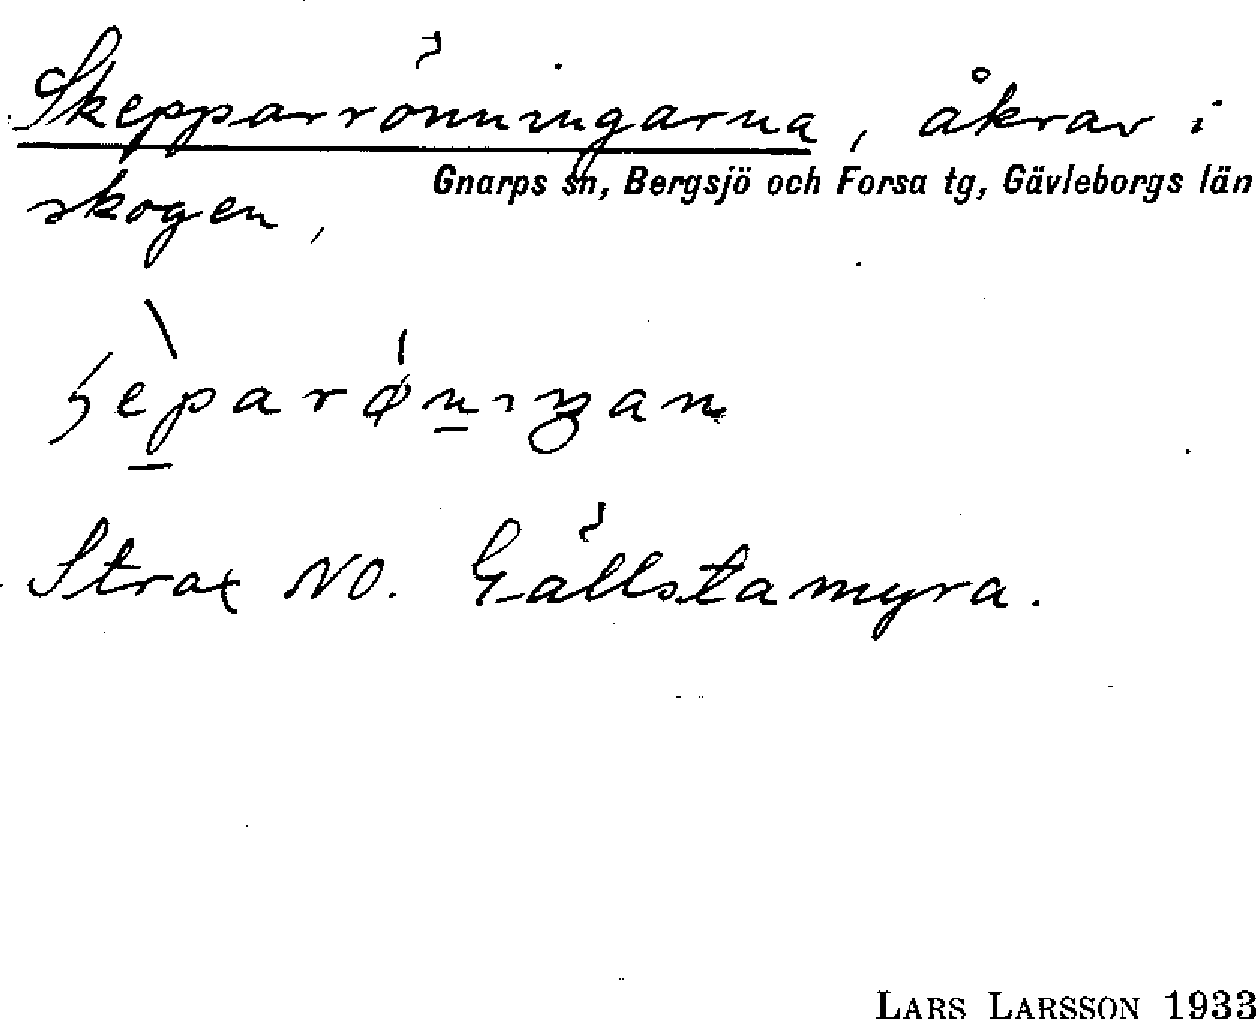 Skepparrönningarna, åkrar i
Gnarps sn, Bergsjö och Forsa tg, Gävleborgs län
skogen,
Strax NO. Gällstamyra.
LARS LARSSON 1933